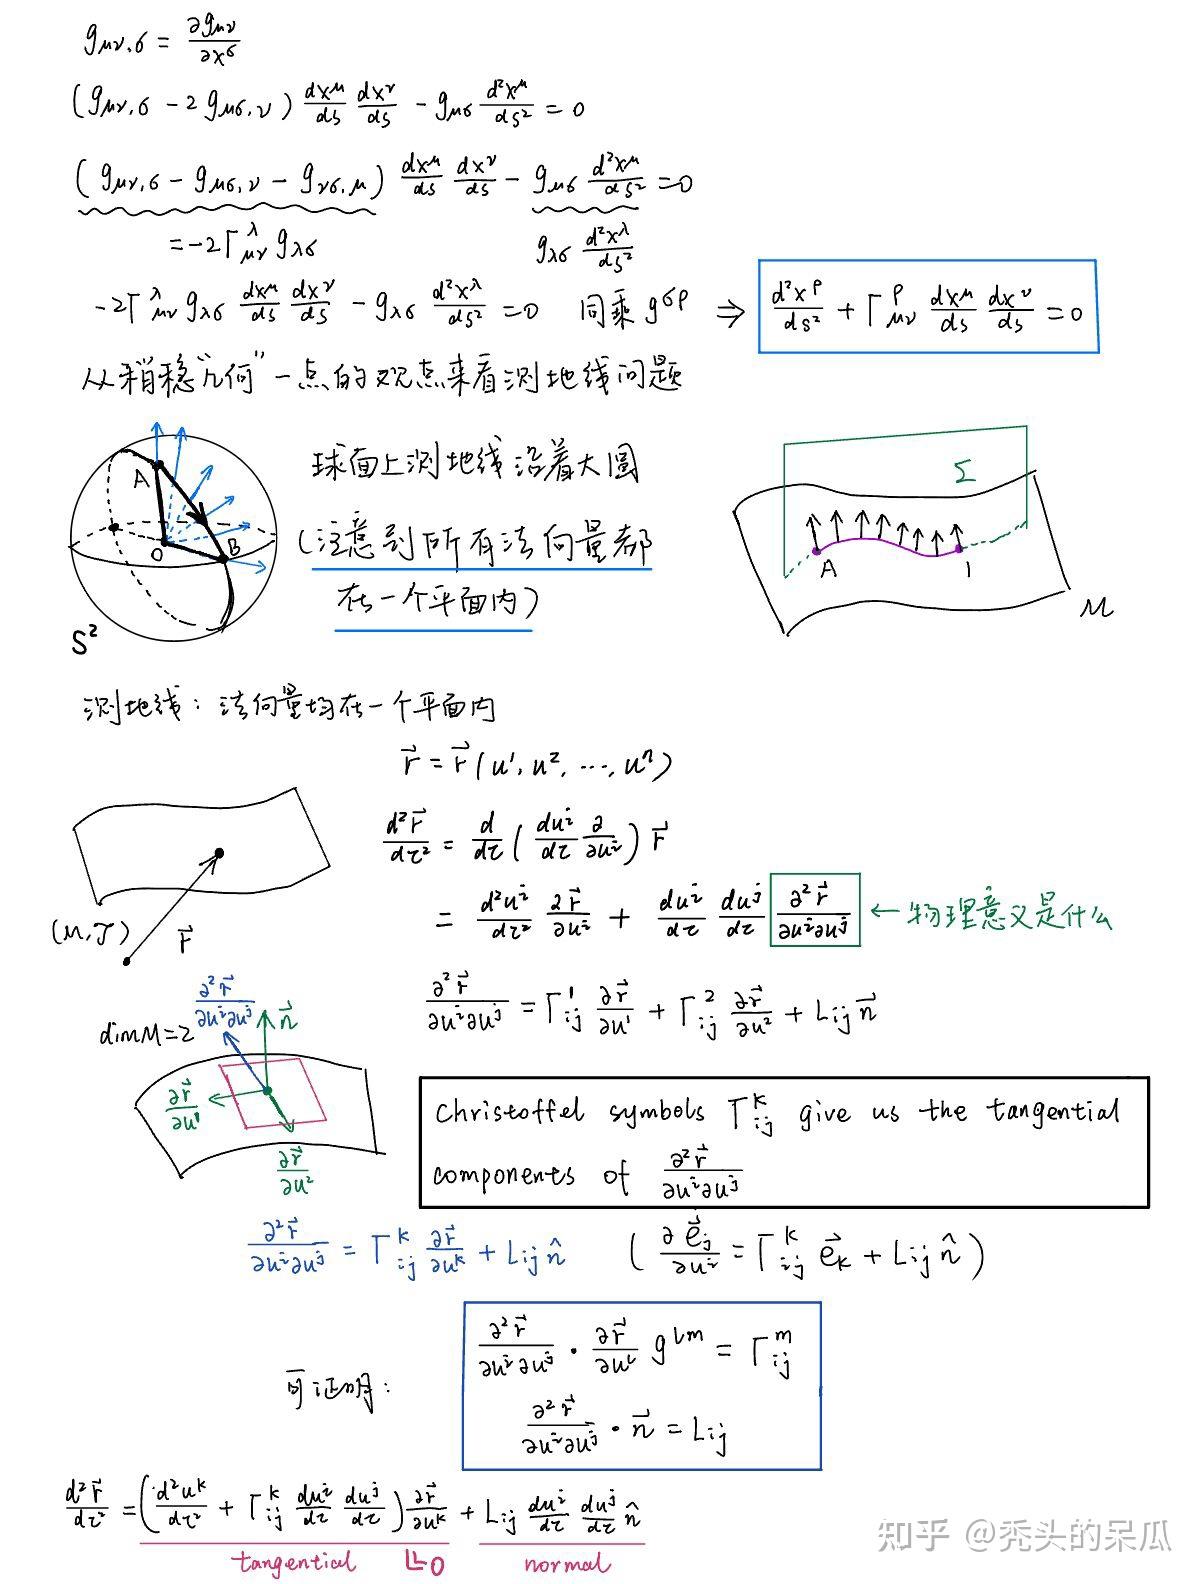 g_{μν,σ} = ∂g_{μν}/∂x^σ
(g_{μν,σ} - 2g_{μσ,ν}) dx^μ/ds dx^ν/ds - g_{μσ} d²x^μ/ds² = 0
(g_{μν,σ} - g_{μσ,ν} - g_{νσ,μ}) dx^μ/ds dx^ν/ds - g_{μσ} d²x^μ/ds² = 0
= -2Γ^λ_{μν} g_{λσ}  g_{λσ} d²x^λ/ds²
-2Γ^λ_{μν} g_{λσ} dx^μ/ds dx^ν/ds - g_{λσ} d²x^λ/ds² = 0 同乘 g^{σρ} ⇒ d²x^ρ/ds² + Γ^ρ_{μν} dx^μ/ds dx^ν/ds = 0
从稍稳“几何”一点的观点来看测地线问题
A
O
B
S²
球面上测地线沿着大圆
(注意到所有法向量都
在一个平面内)
Σ
A
1
M
测地线: 法向量均在一个平面内
r⃗ = r⃗(u¹, u², ..., uⁿ)
d²r⃗/dτ² = d/dτ (du^i/dτ ∂/∂u^i) r⃗
= d²u^i/dτ² ∂r⃗/∂u^i + du^i/dτ du^j/dτ ∂²r⃗/∂u^i∂u^j ← 物理意义是什么
(M, J)
r⃗
∂²r⃗/∂u^i∂u^j = Γ¹_{ij} ∂r⃗/∂u¹ + Γ²_{ij} ∂r⃗/∂u² + L_{ij} n⃗
dimM=2
∂²r⃗/∂u^i∂u^j
n⃗
∂r⃗/∂u¹
∂r⃗/∂u²
Christoffel symbols Γ^k_{ij} give us the tangential
components of ∂²r⃗/∂u^i∂u^j
∂²r⃗/∂u^i∂u^j = Γ^k_{ij} ∂r⃗/∂u^k + L_{ij} n̂ (∂e⃗_j/∂u^i = Γ^k_{ij} e⃗_k + L_{ij} n̂)
可证明:
∂²r⃗/∂u^i∂u^j · ∂r⃗/∂u^l g^{lm} = Γ^m_{ij}
∂²r⃗/∂u^i∂u^j · n⃗ = L_{ij}
d²r⃗/dτ² = (d²u^k/dτ² + Γ^k_{ij} du^i/dτ du^j/dτ) ∂r⃗/∂u^k + L_{ij} du^i/dτ du^j/dτ n̂
tangential 0 normal
知乎 @秃头的呆瓜